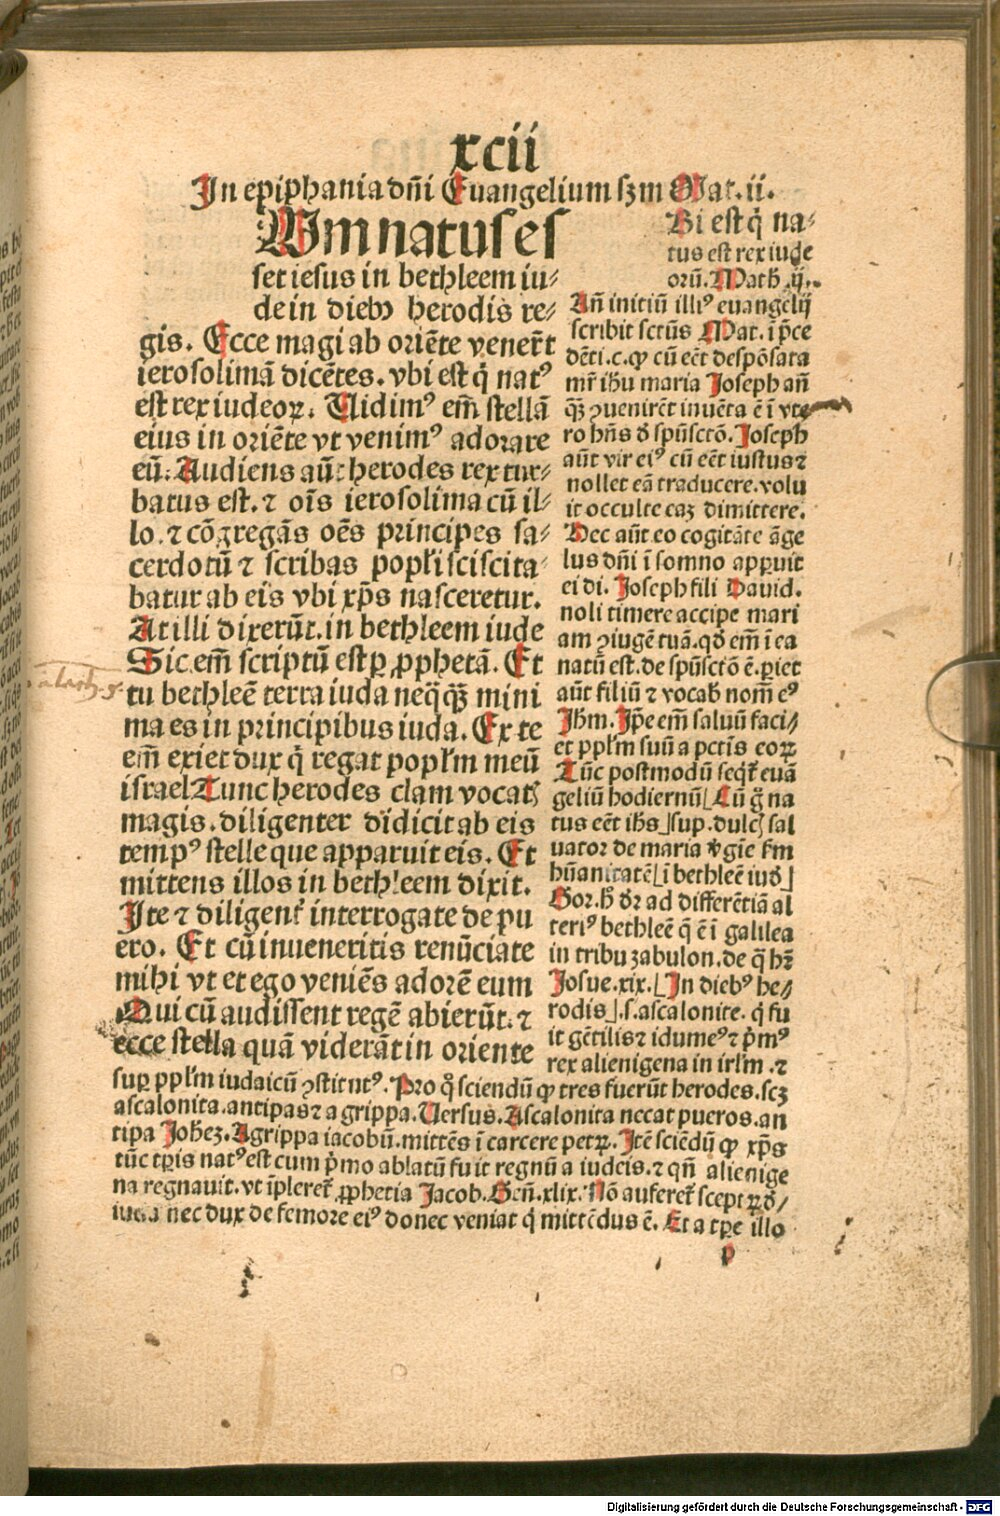 xcii
In epiphania dñi Euangelium scẜm Mat. ii.
Wm natus es
set iesus in bethleem iu⸗
de in dieb⁹ herodis re⸗
gis. Ecce magi ab oriēte venerũt
ierosolimā dicētes. vbi est q̇ nat⁹
est rex iudeoꝝ. Uidim⁹ em̄ stellā
eius in oriēte vt venim⁹ adorare
eū. Audiens aūt herodes rex tur⸗
batus est. ⁊ oīs ierosolima cū il⸗
lo. ⁊ cōgregās oēs principes sa⸗
cerdotū ⁊ scribas popl̄i sciscita⸗
batur ab eis vbi xp̄s nasceretur.
At illi dixerūt. in bethleem iude
Sic em̄ scriptū est ꝑ ꝓphetā. Et
tu bethleē terra iuda neq̄q̄ꝫ mini
ma es in principibus iuda. Ex te
em̄ exiet dux q̇ regat popl̄m meū
israel Tunc herodes clam vocatꝭ
magis. diligenter didicit ab eis
temp⁹ stelle que apparuit eis. Et
mittens illos in bethleem dixit.
Ite ⁊ diligent̄ interrogate de pu
ero. Et cū inueneritis renūciate
mihi vt et ego veniēs adorē eum
Qui cū audissent regē abierūt. ⁊
ecce stella quā viderāt in oriente
Bi est q̇ na⸗
tus est rex iude
orū. Math. ij.
An̄ initiū illi⁹ euangelij
scribit sctūs Mat. ī p̄ce
dēti. c. ꝙ cū eēt despōsata
mr̄ ihū maria Joseph añ
q̄ꝫ ꝯuenirēt inuēta ē ī vte
ro hñs d̄ spūsctō. Joseph
aūt vir ei⁹ cū eēt iustus ⁊
nollet eā traducere. volu
it occulte eaꝫ dimittere.
Hec aūt eo cogitāte āge
lus dñi ī somno apꝑuit
ei di. Joseph fili Dauid.
noli timere accipe mari
am ꝯiugē tuā. qd̄ em̄ ī ea
natū est. de spūsctō ē. ꝑiet
aūt filiū ⁊ vocab̄ nom̄ e⁹
Jhm̄. Jp̄e em̄ saluū faci⸗
et ppl̄m suū a pctīs eoꝝ
Tūc postmodū seqt̄ euā
geliū hodiernū⁅ Cū g̊ na
tus eēt ihs̄⁆ sup. dulcꝭ sal
uator de maria v̄gīe ẜm
hūanitatē⁅ ī bethleē iud̄⁆
Gor. h̄ dr̄ ad differētiā al
teri⁹ bethleē q̄ ē ī galilea
in tribu zabulon. de q̄ hr̄
Josue. xix. ⁅In dieb⁹ he⸗
rodis⁆. s. ascalonite. q̇ fu
it gētilis ⁊ idume⁹ ⁊ p̄m⁹
rex alienigena in irl̄m. ⁊
suꝑ ppl̄m iudaicū ꝯstitut⁹. Pro q̊ sciendū ꝙ tres fuerūt herodes. scꝫ
ascalonita. antipas ⁊ agrippa. Uersus. Ascalonita necat pueros. an
tipa Joheꝫ. Agrippa iacobū. mittēs ī carcere petꝝ. Itē sciēdū ꝙ xp̄s
tūc tꝑis nat⁹ est cum p̄mo ablatū fuit regnū a iudeis. ⁊ qn̄ alienige
na regnauit. vt īpleret̄ ꝓphetia Jacob. Geñ. xlix. Nō auferet̄ sceptꝝ d̄⸗
iuda nec dux de femore ei⁹ donec veniat q̇ mittēdus ē. Et a tꝑe illo
p
Digitalisierung gefördert durch die Deutsche Forschungsgemeinschaft - DFG